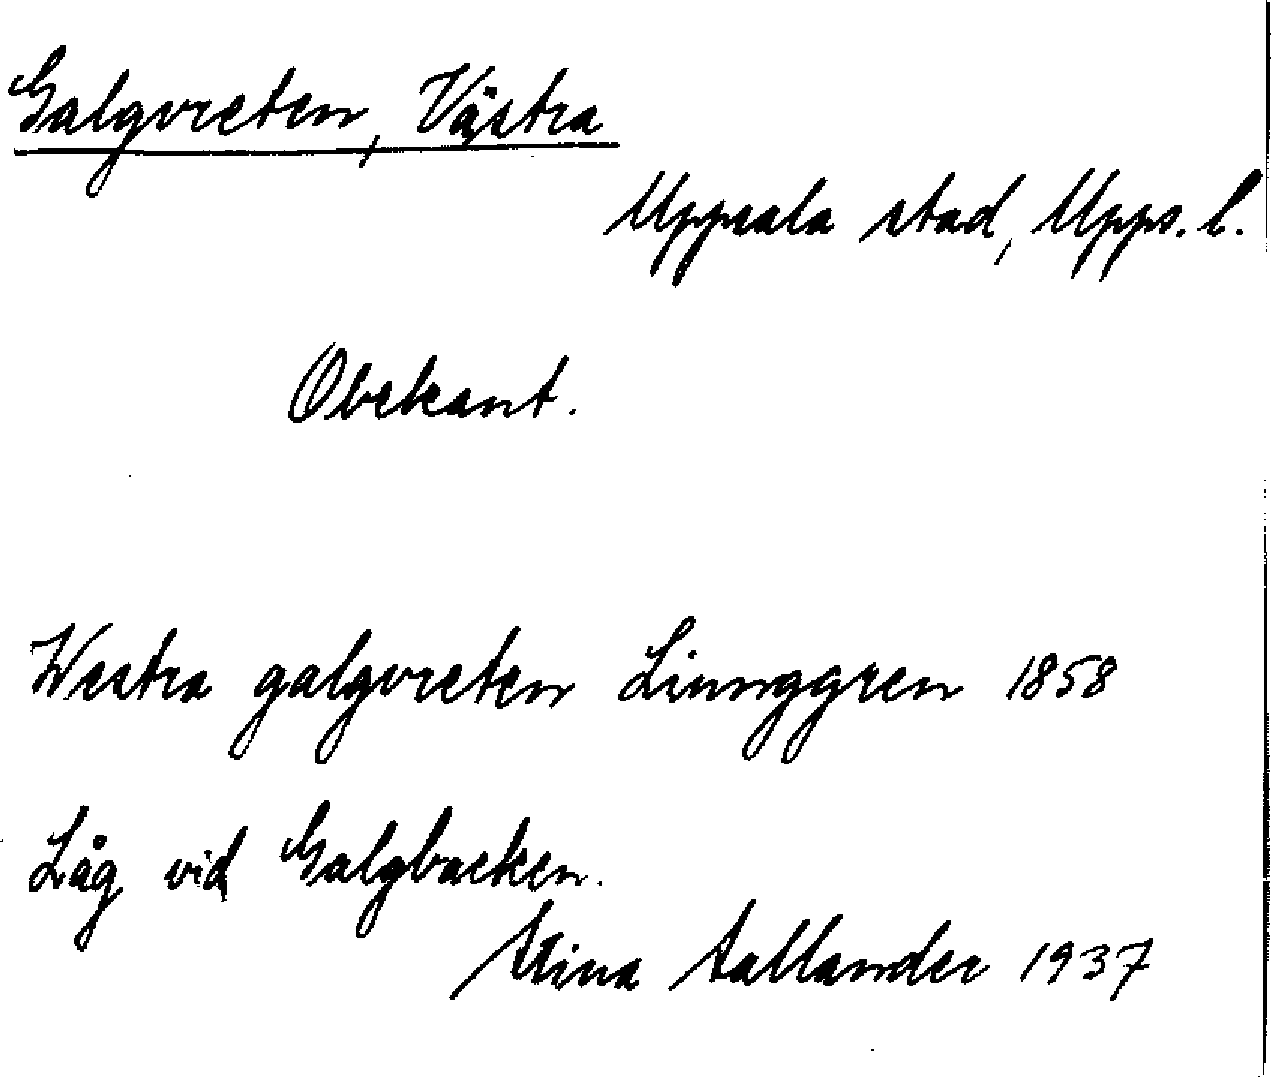 Galgvreten, Västra
Uppsala stad, Upps. l.
Obekant.
Westra galgvreten Ljunggren 1858
Låg vid Galgbacken.
Stina Aallander 1937